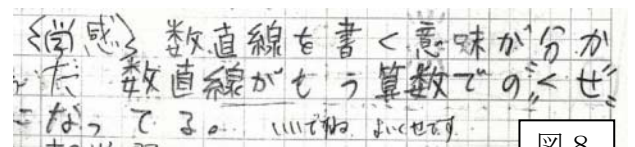 〈学感〉数直線を書く意味が分か
った 数直線がもう算数での〝くせ〟
になってる。 いいですね よいくせです
図 8